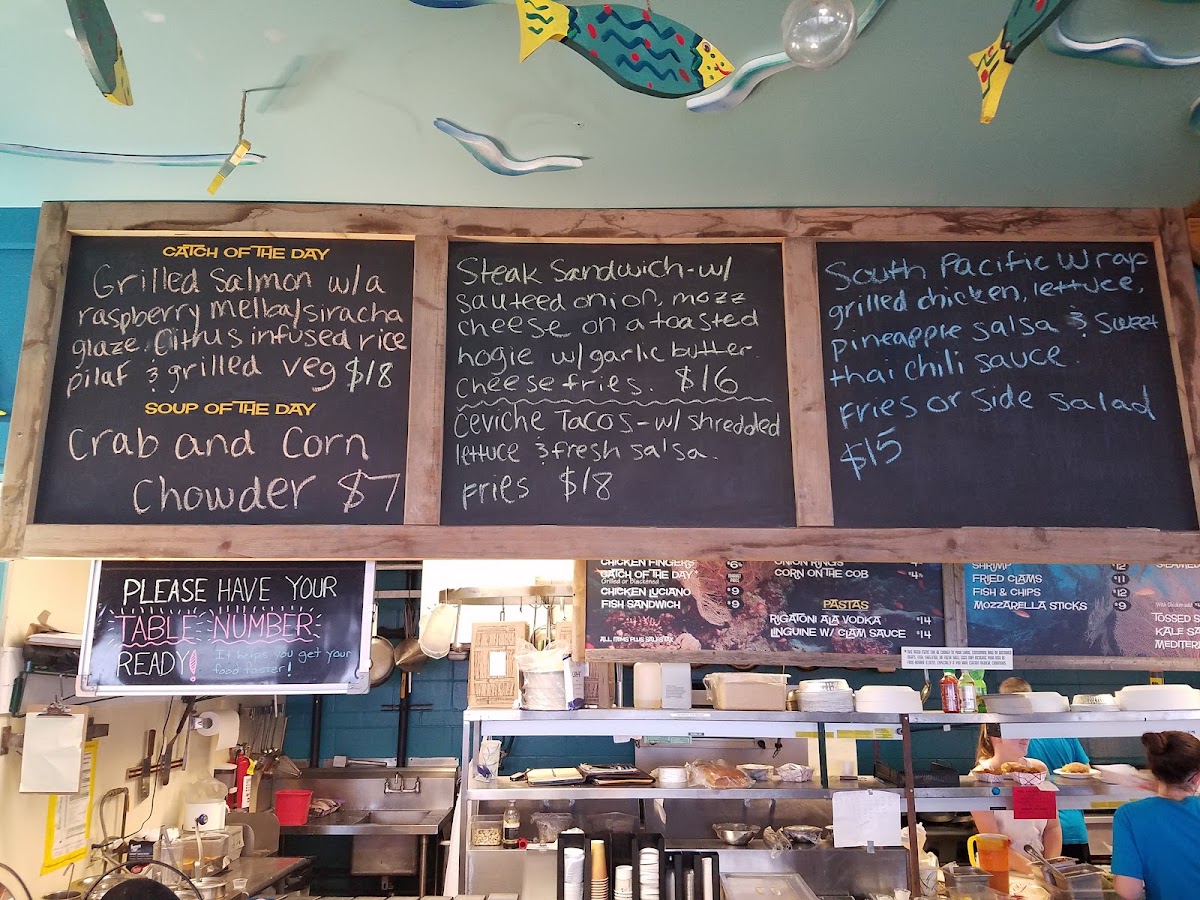 CATCH OF THE DAY
Grilled Salmon w/a
raspberry melba/siracha
glaze. Citrus infused rice
pilaf & grilled veg $18
SOUP OF THE DAY
Crab and Corn
Chowder $7
Steak Sandwich - w/
sauteed onion, mozz
cheese on a toasted
hogie w/ garlic butter.
cheese fries. $16
Ceviche Tacos - w/ shredded
lettuce & fresh salsa.
Fries $18
South Pacific Wrap
grilled chicken, lettuce,
pineapple salsa & sweet
thai chili sauce.
Fries or side salad
$15
PLEASE HAVE YOUR
TABLE NUMBER
READY! It helps you get your
food faster!
CHICKEN FINGERS $6
CATCH OF THE DAY*
Grilled or Blackened
CHICKEN LUCIANO $9
FISH SANDWICH $9
ALL ITEMS PLUS SALES TAX
ONION RINGS
CORN ON THE COB
PASTAS
RIGATONI ALA VODKA $14
LINGUINE W/ CLAM SAUCE $14
SHRIMP
FRIED CLAMS $11
FISH & CHIPS $12
MOZZARELLA STICKS $9
STEAMED
TOSSED
KALE